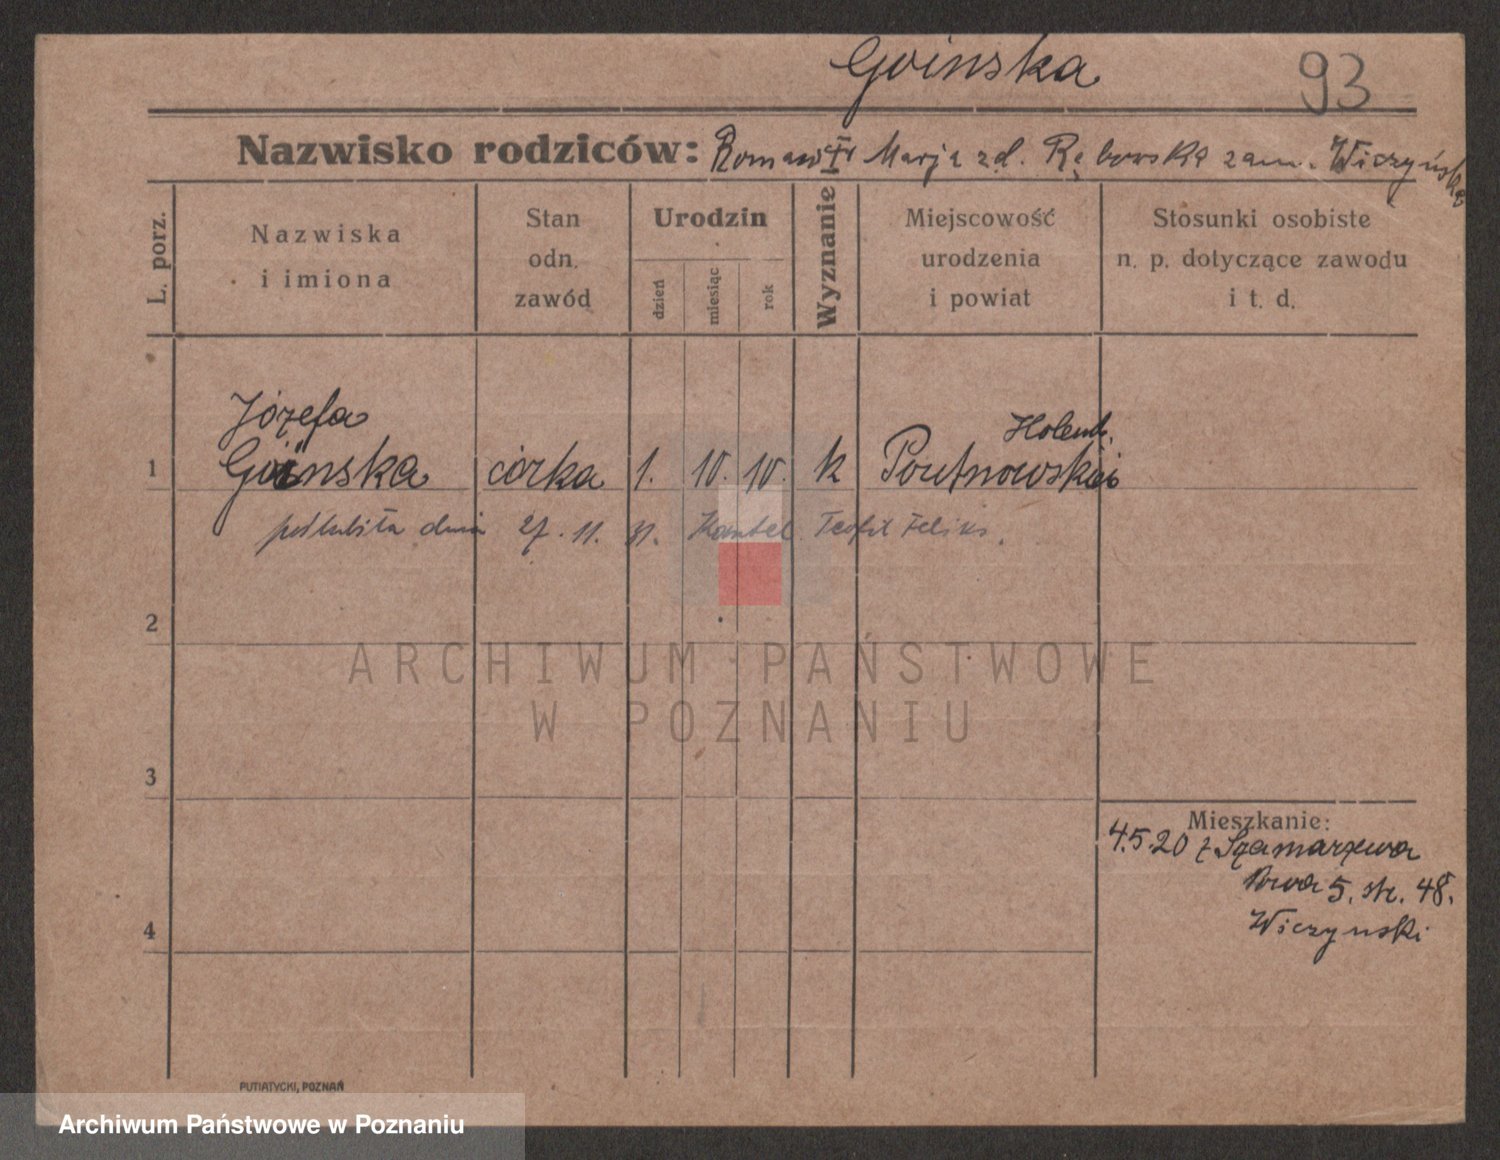 Goinska
93
Nazwisko rodziców: Roman † i Marja zd. Rębowska zam. Wiczyńska
L. porz.
Nazwiska
i imiona
Stan
odn.
zawód
Urodzin
dzień
miesiąc
rok
Wyznanie
Miejscowość
urodzenia
i powiat
Stosunki osobiste
n. p. dotyczące zawodu
i t. d.
Józefa
Holend.
1 Goinska córka 1. 10. 10. k
poślubiła dnia 27. 11. 31. Teofil Feliks.
2
ARCHIWUM PAŃSTWOWE
W POZNANIU
3
Mieszkanie:
4.5.20 z Szamarzewa
5. str. 48.
4
Wiczynski
PUTIATYCKI, POZNAŃ
Archiwum Państwowe w Poznaniu